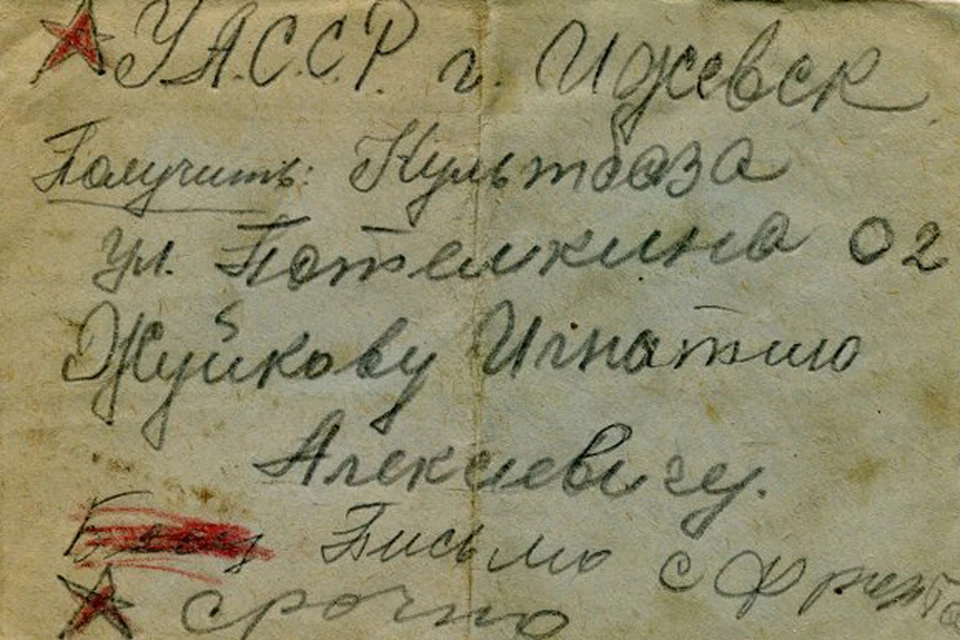 У.А.С.С.Р. г. Ижевск
Получить: Культбаза
ул. Потемкина 02
Жуйкову Игнатию
Алексеевичу.
Письмо с фронта
срочно